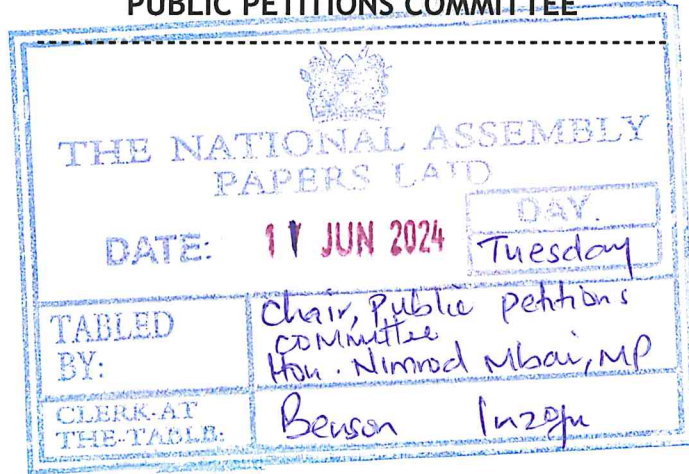 PUBLIC PETITIONS COMMITTEE
THE NATIONAL ASSEMBLY
PAPERS LAID
DATE: 11 JUN 2024
DAY.
Tuesday
TABLED BY:
Chair, Public petitions
committee
Hon. Nimrod Mbai, MP
CLERK-AT
THE-TABLE:
Benson Inzofu